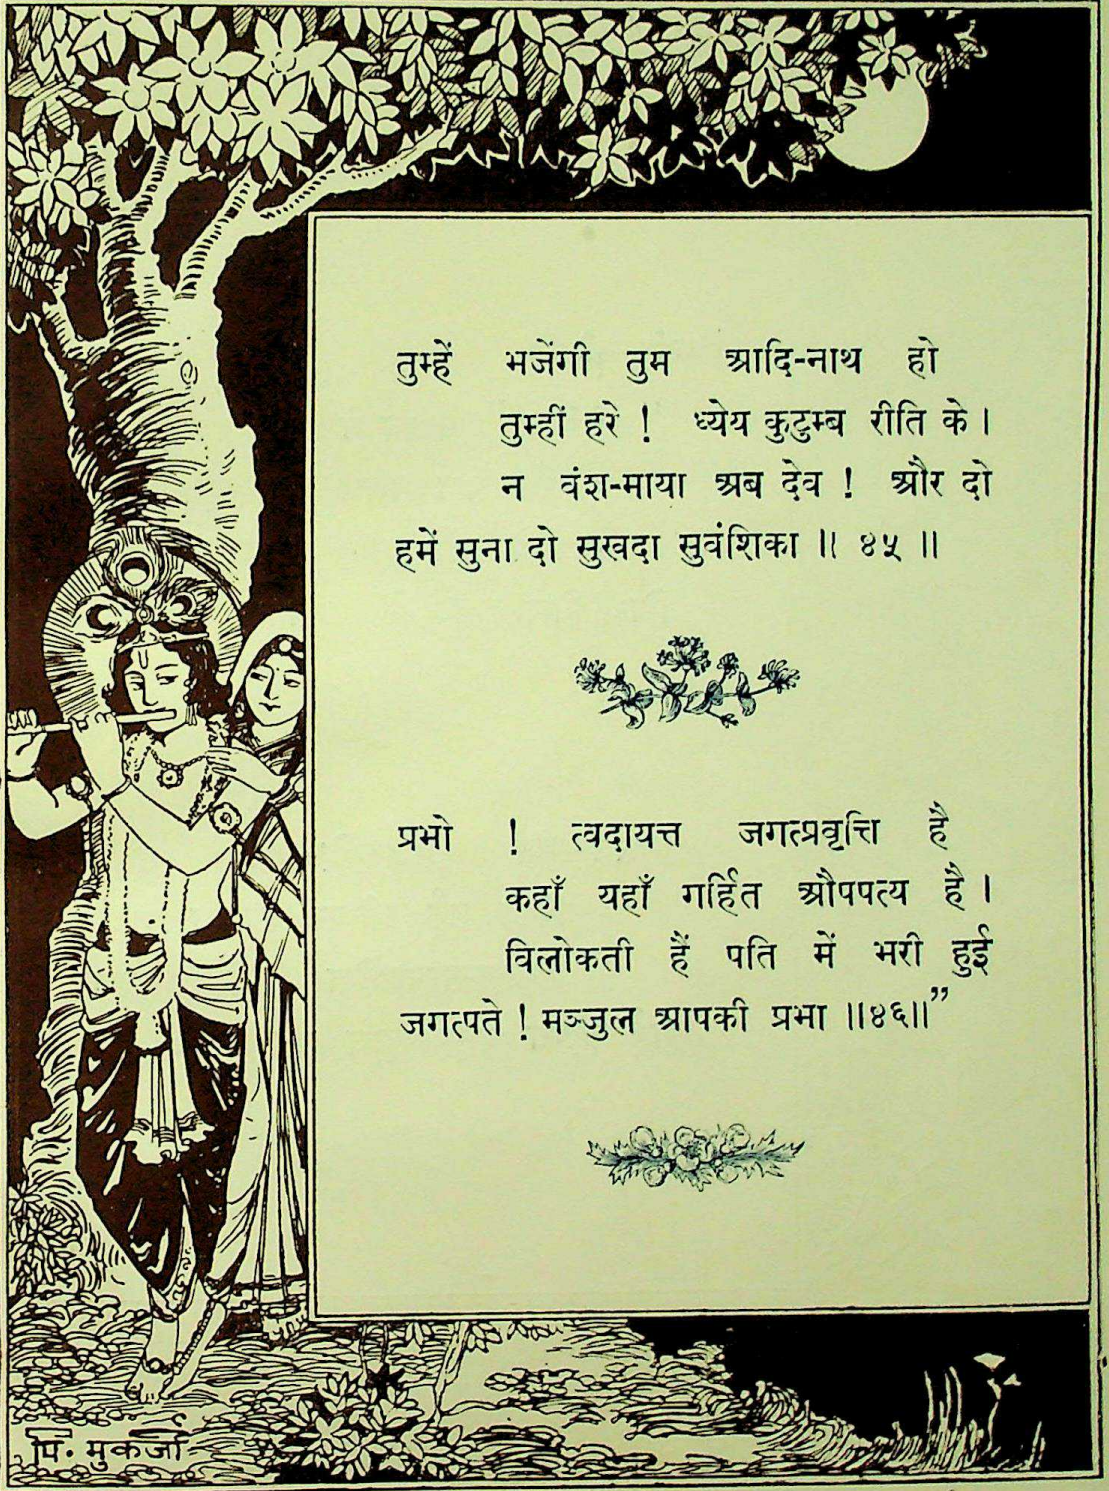 तुम्हें भजेंगी तुम आदि-नाथ हो
तुम्हीं हरे ! ध्येय कुटुम्ब रीति के ।
न वंश-माया अब देव ! और दो
हमें सुना दो सुखदा सुवंशिका ॥ ४५ ॥
प्रभो ! त्वदायत्त जगत्प्रवृत्ति है
कहाँ यहाँ गर्हित औपपत्य है ।
विलोकती हैं पति में भरी हुई
जगत्पते ! मञ्जुल आपकी प्रभा ॥४६॥”
पि. मुकर्जी